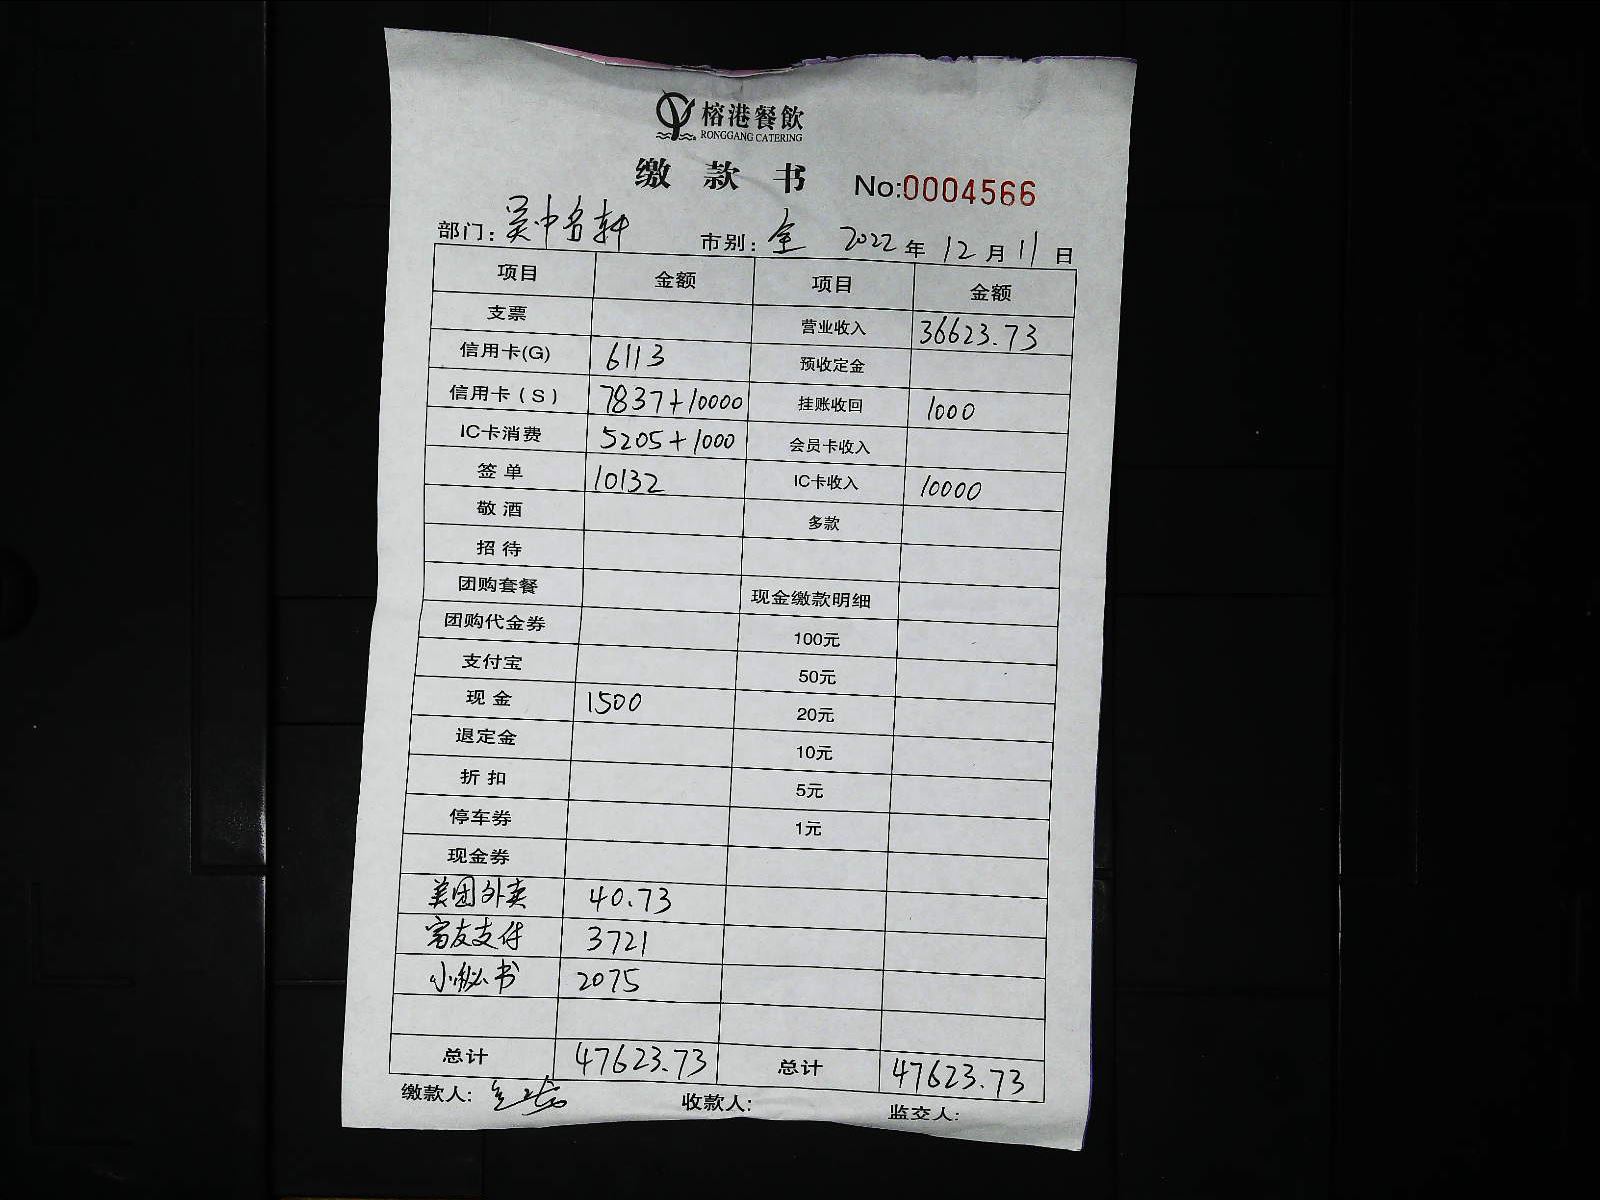 榕港餐飲
RONGGANG CATERING
缴款书 No:0004566
部门: 吴中名轩 市别: 全 2022年12月11日
项目 金额 项目 金额
支票 营业收入 36623.73
信用卡(G) 6113 预收定金
信用卡(S) 7837+10000 挂账收回 1000
IC卡消费 5205+1000 会员卡收入
签单 10132 IC卡收入 10000
敬酒 多款
招待
团购套餐 现金缴款明细
团购代金券 100元
支付宝 50元
现金 1500 20元
退定金 10元
折扣 5元
停车券 1元
现金券
美团外卖 40.73
富友支付 3721
小秘书 2075
总计 47623.73 总计 47623.73
缴款人: 收款人: 监交人: